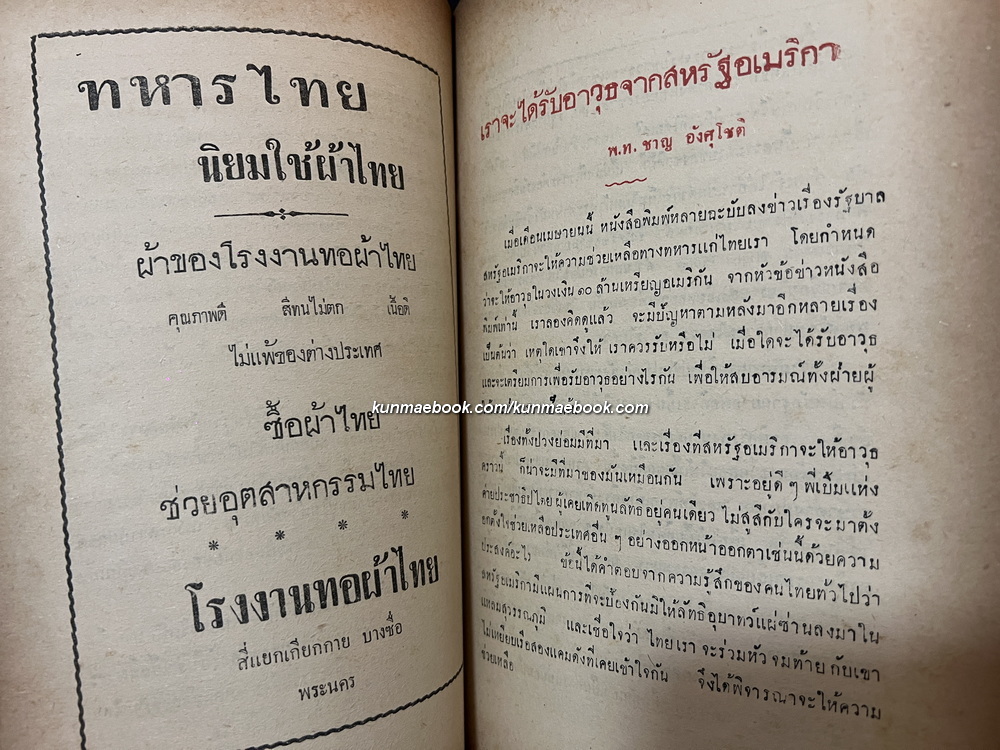 ทหารไทย
นิยมใช้ผ้าไทย
ผ้าของโรงงานทอผ้าไทย
คุณภาพดี สีทนไม่ตก เนื้อดี
ไม่แพ้ของต่างประเทศ
ซื้อผ้าไทย
ช่วยอุตสาหกรรมไทย
* * * *
โรงงานทอผ้าไทย
สี่แยกเกียกกาย บางซื่อ
พระนคร
เราจะได้รับอาวุธจากสหรัฐอเมริกา
พ.ท. ชาญ อังศุโชติ
เมื่อเดือนเมษายนนี้ หนังสือพิมพ์หลายฉะบับลงข่าวเรื่องรัฐบาล
สหรัฐอเมริกาจะให้ความช่วยเหลือทางทหารแก่ไทยเรา โดยกำหนด
ว่าจะให้อาวุธในวงเงิน ๑๐ ล้านเหรียญอเมริกัน จากหัวข้อข่าวหนังสือ
พิมพ์เท่านี้ เราลองคิดดูแล้ว จะมีปัญหาตามหลังมาอีกหลายเรื่อง
เป็นต้นว่า เหตุใดเขาจึงให้ เราควรรับหรือไม่ เมื่อใดจะได้รับอาวุธ
และจะเตรียมการเพื่อรับอาวุธอย่างไรกัน เพื่อให้สบอารมณ์ทั้งฝ่ายผู้
kunmaebook.com/kunmaebook.com
เรื่องทั้งปวงย่อมมีที่มา และเรื่องที่สหรัฐอเมริกาจะให้อาวุธ
คราวนี้ ก็น่าจะมีที่มาของมันเหมือนกัน เพราะอยู่ดี ๆ พี่เบิ้มแห่ง
ค่ายประชาธิปไตย ผู้เคยเทิดทูนลัทธิอยู่คนเดียว ไม่สู้สีกับใครจะมาตั้ง
อกตั้งใจช่วยเหลือประเทศอื่น ๆ อย่างออกหน้าออกตาเช่นนี้ด้วยความ
ประสงค์อะไร ข้อนี้ได้คำตอบจากความรู้สึกของคนไทยทั่วไปว่า
สหรัฐอเมริกามีแผนการที่จะป้องกันมิให้ลัทธิอุบาทว์แผ่ซ่านลงมาใน
แหลมสุวรรณภูมิ และเชื่อใจว่า ไทยเราจะร่วมหัวจมท้ายกับเขา
ไม่เหยียบเรือสองแคมดังที่เคยเข้าใจกัน จึงได้พิจารณาจะให้ความ
ช่วยเหลือ